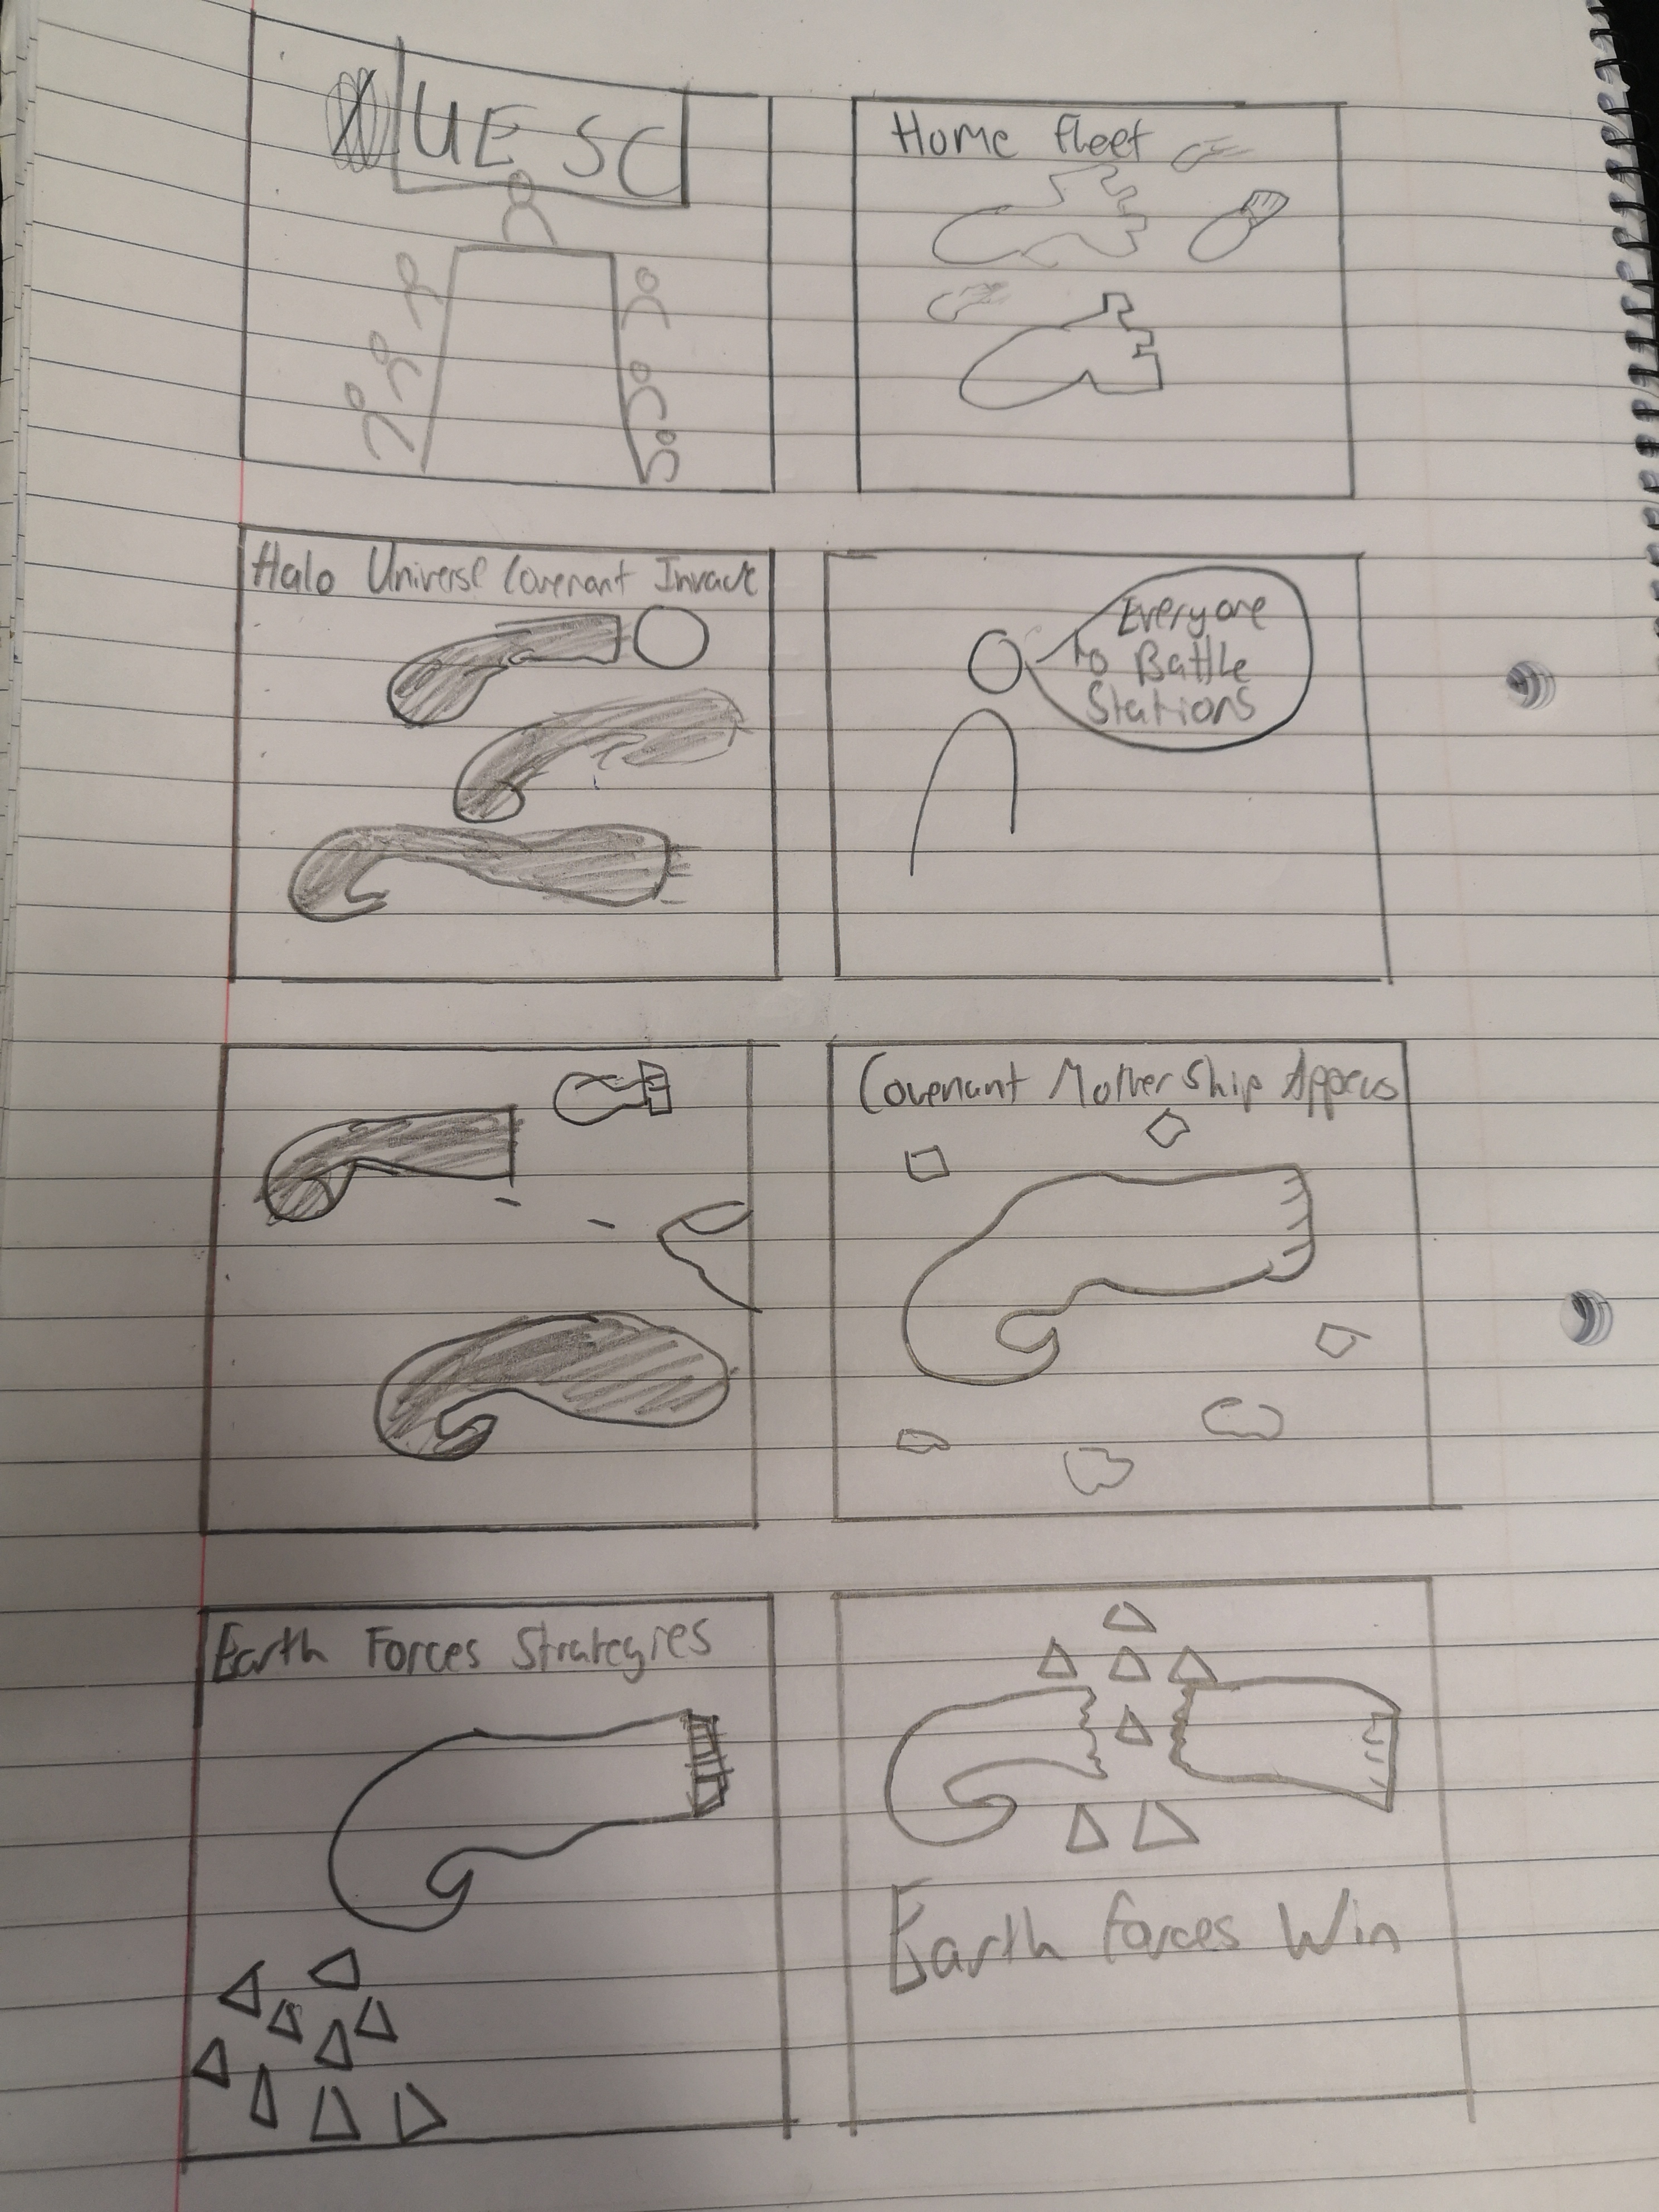 UESC
Home fleet
Halo Universe Covenant Invade
Everyone
to Battle
Stations
Covenant Mother Ship Appears
Earth Forces Strategies
Earth forces Win